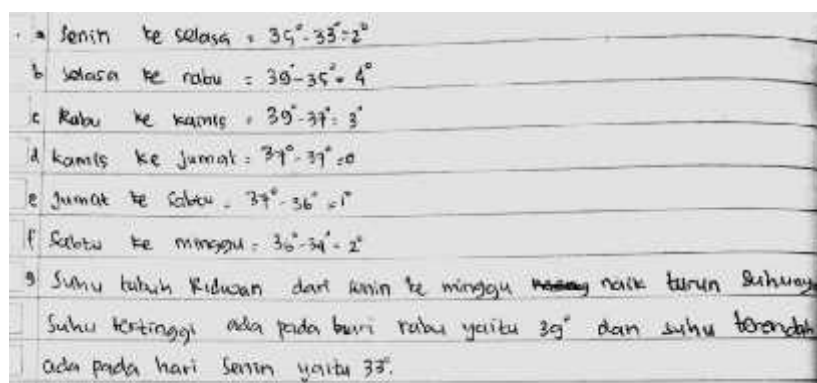 a Senin ke selasa = 35°-33°=2°
b Selasa ke rabu = 39°-35°= 4°
c Rabu ke kamis = 39°-37°= 3°
d kamis ke Jumat = 37°-37°=0
e Jumat ke Sabtu = 37°-36°=1°
f Sabtu ke minggu = 36°-34°= 2°
g Suhu tubuh Ridwan dari senin ke minggu naik turun Suhunya
Suhu tertinggi ada pada hari rabu yaitu 39° dan suhu terendah
ada pada hari Senin yaitu 33°.